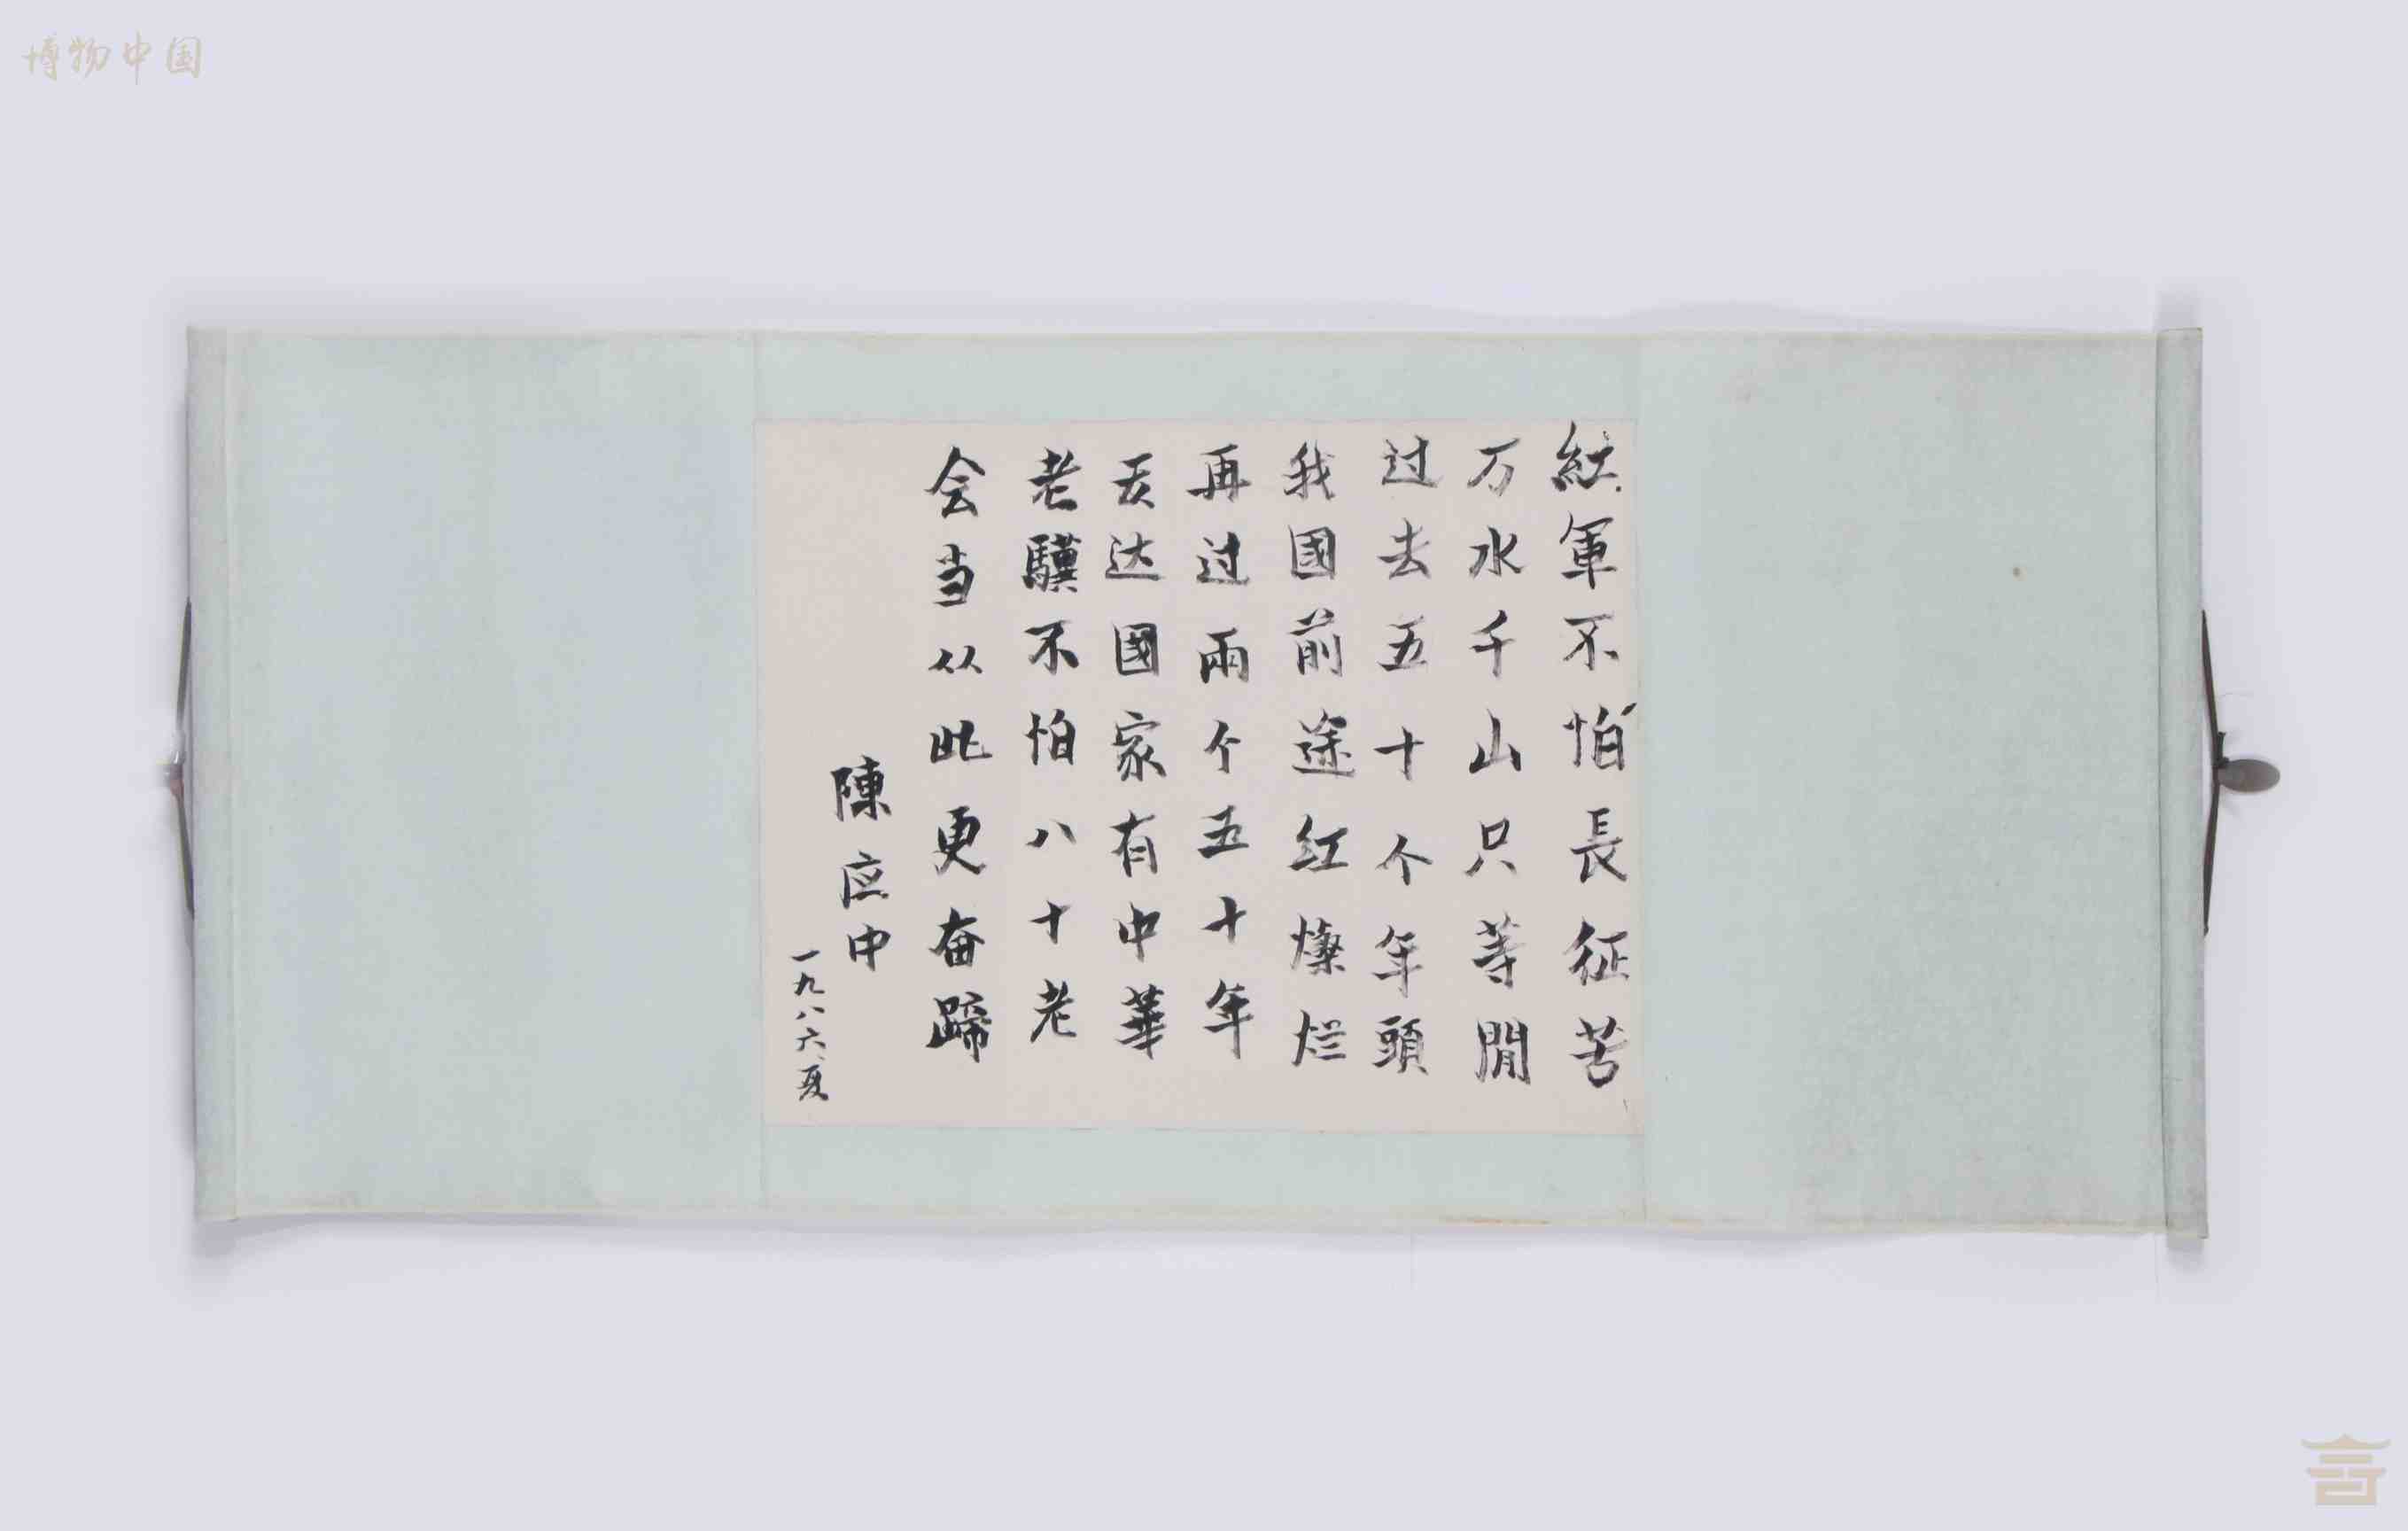 博物中国
紅軍不怕長征苦
万水千山只等閒
过去五十个年頭
我國前途红燦烂
再过兩个五十年
发达國家有中華
老驥不怕八十老
会当从此更奋蹄
陳应中
一九八六、夏